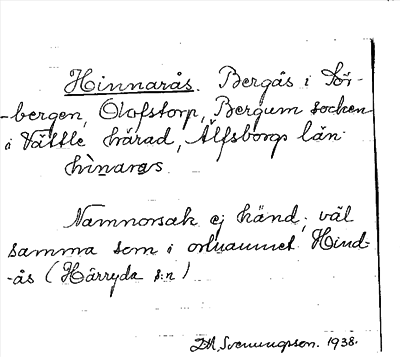 Hinnarås. Bergås i Tor-
-bergen, Olofstorp, Bergum socken
i Vättle härad, Älfsborgs län.
hìnaras.
Namnorsak ej känd; väl
samma som i ortnamnet Hind-
-ås (Härryda s:n)
Svenungsson. 1938.